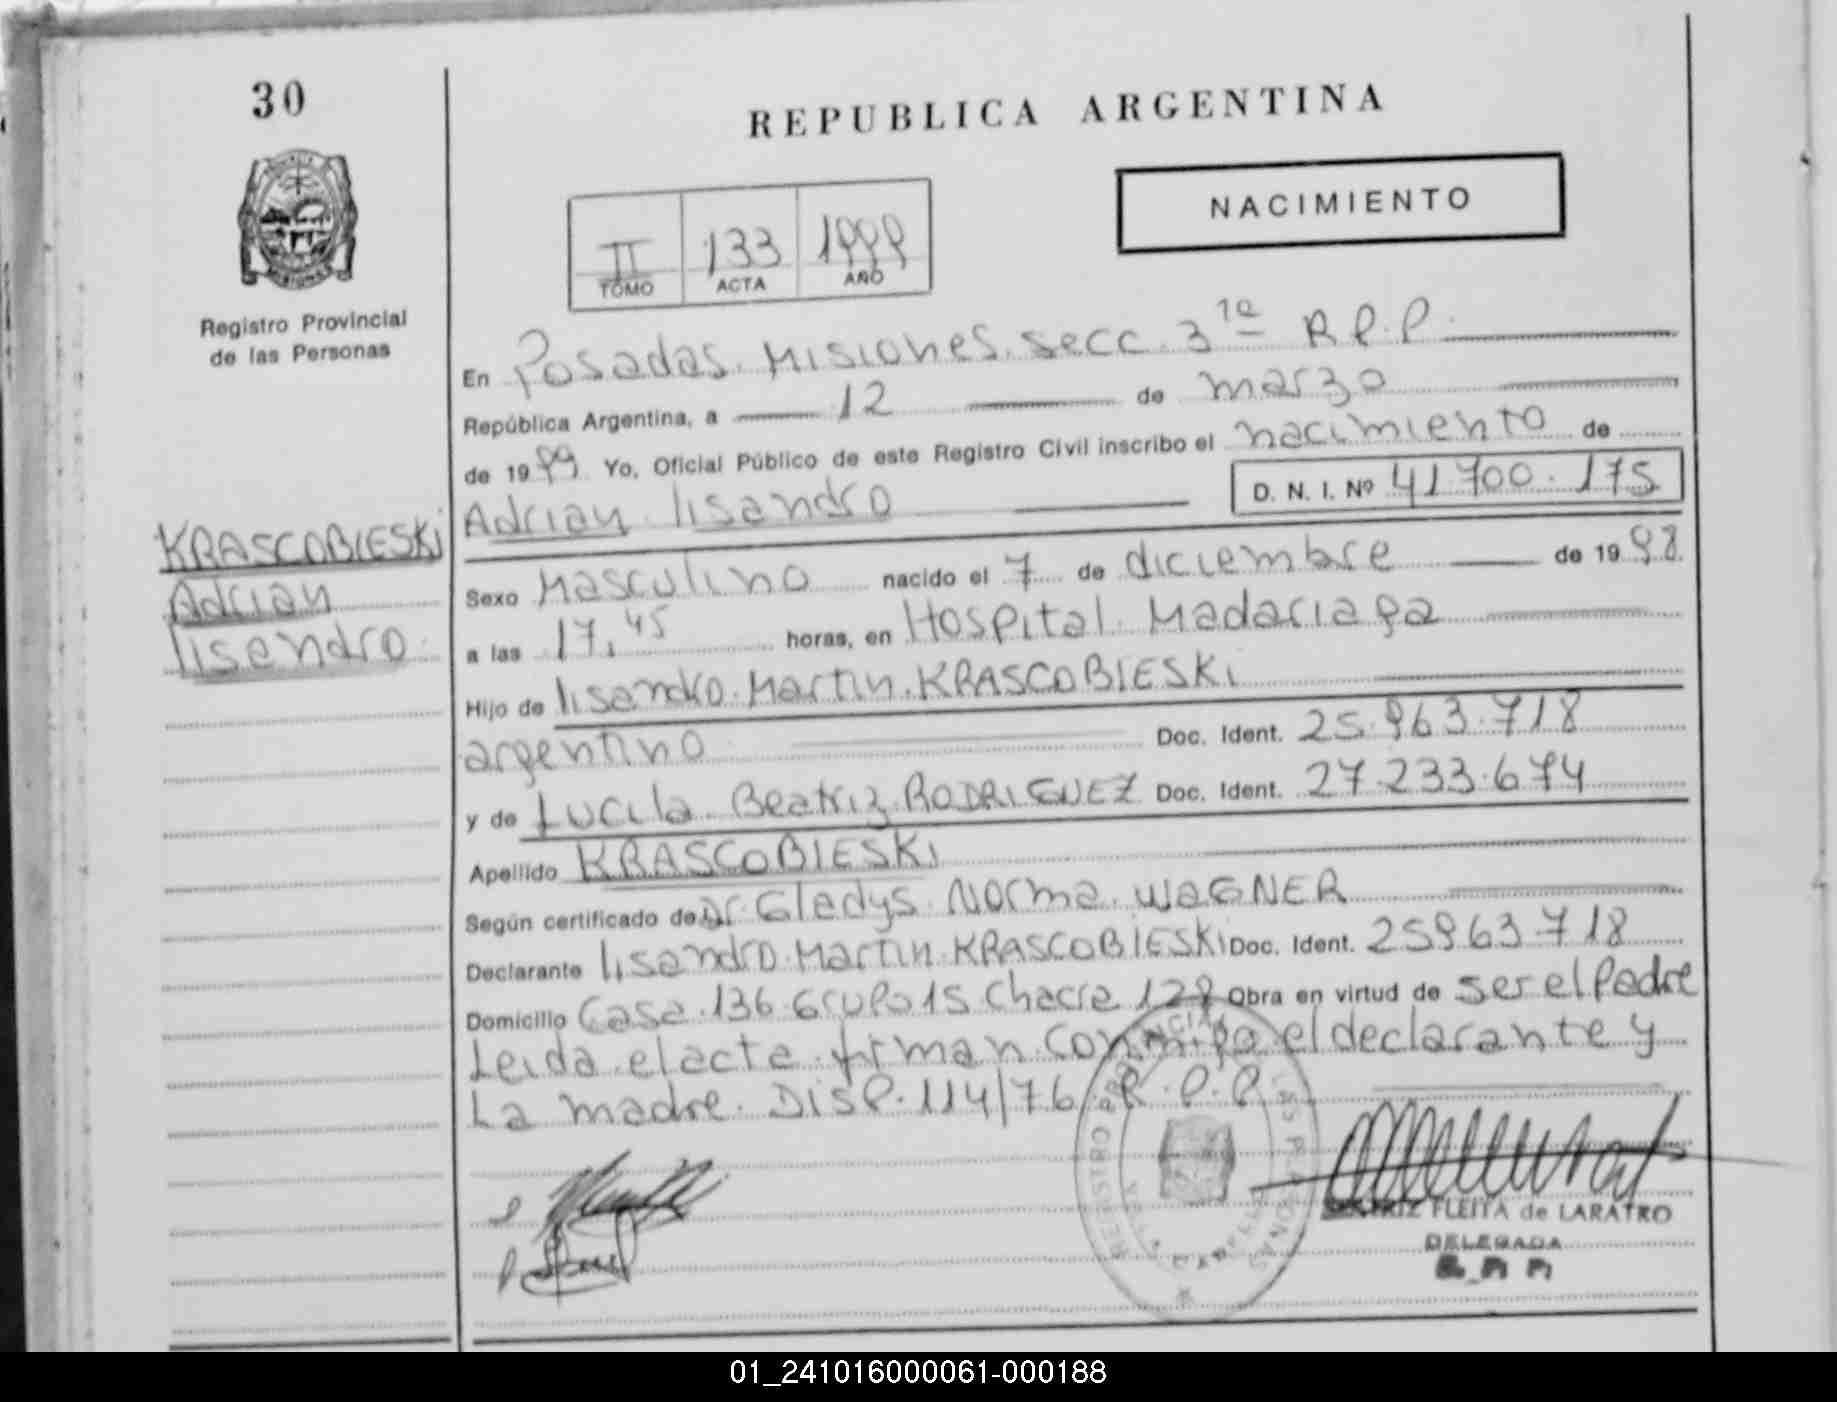 30
REPUBLICA ARGENTINA
NACIMIENTO
II 133 1999
TOMO ACTA AÑO
Registro Provincial
de las Personas
En Posadas. Misiones. secc. 3ra R.P.P.
República Argentina, a 12 de marzo
de 1999 Yo, Oficial Público de este Registro Civil inscribo el nacimiento de
Adrian lisandro D. N. I. Nº 41 700. 175
KRASCOBIESKi
Adrian
lisandro
Sexo Masculino nacido el 7 de diciembre de 1998.
a las 17,45 horas, en Hospital Madariaga
Hijo de lisandro. Martin. KRASCOBIESKi
argentino Doc. Ident. 25.963.718
y de Lucila Beatriz. RODRIGUEZ Doc. Ident. 27.233.674
Apellido KRASCOBIESKi
Según certificado de Dr. Gladys Norma. WAGNER
Declarante lisandro. Martin. KRASCOBIESKi Doc. Ident. 25963.718
Domicilio Casa. 136. Grupo 15 Chacra 128 Obra en virtud de ser el Padre
Leida el acta firman conmigo el declarante y
La madre. Disp. 114/76 R.P.P.
FLEITA de LARATRO
DELEGADA
01_241016000061-000188